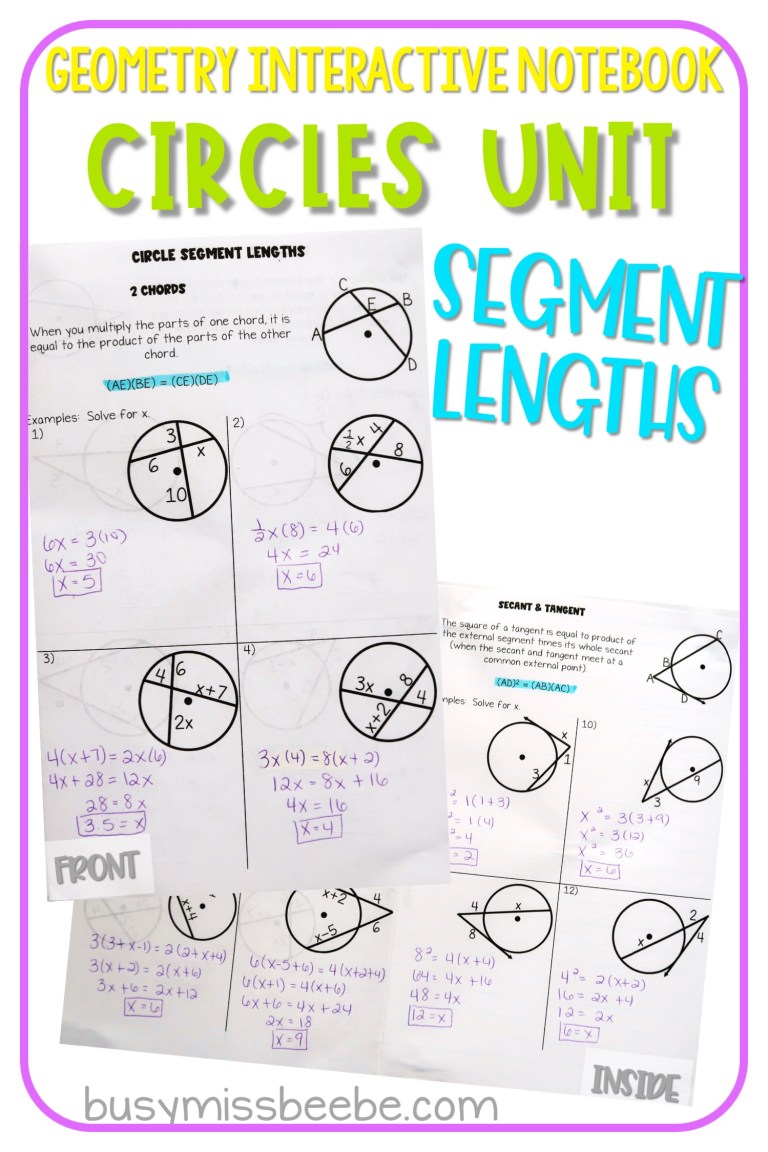 GEOMETRY INTERACTIVE NOTEBOOK
CIRCLES UNIT
SEGMENT
LENGTHS
CIRCLE SEGMENT LENGTHS
2 CHORDS
When you multiply the parts of one chord, it is
equal to the product of the parts of the other
chord.
(AE)(BE) = (CE)(DE)
C
E
B
A
D
Examples: Solve for x.
1)
3
x
6
10
6x = 3(10)
6x = 30
x = 5
2)
½x
4
8
6
½x(8) = 4(6)
4x = 24
x = 6
3)
4
6
x+7
2x
4(x+7) = 2x(6)
4x + 28 = 12x
28 = 8x
3.5 = x
4)
3x
8
4
x+2
3x(4) = 8(x+2)
12x = 8x + 16
4x = 16
x = 4
FRONT
SECANT & TANGENT
The square of a tangent is equal to product of
the external segment times its whole secant
(when the secant and tangent meet at a
common external point)
(AD)² = (AB)(AC)
C
B
A
D
Solve for x.
x
1
3
= 1(1+3)
= 1(4)
= 4
= 2
10)
x
3
9
x² = 3(3+9)
x² = 3(12)
x² = 36
x = 6
x+4
3(3+x-1) = 2(2+x+4)
3(x+2) = 2(x+6)
3x + 6 = 2x + 12
x = 6
x+2
4
x-5
6
6(x-5+6) = 4(x+2+4)
6(x+1) = 4(x+6)
6x + 6 = 4x + 24
2x = 18
x = 9
4
x
8
8² = 4(x+4)
64 = 4x + 16
48 = 4x
12 = x
12)
2
x
4
4² = 2(x+2)
16 = 2x + 4
12 = 2x
6 = x
INSIDE
busymissbeebe.com